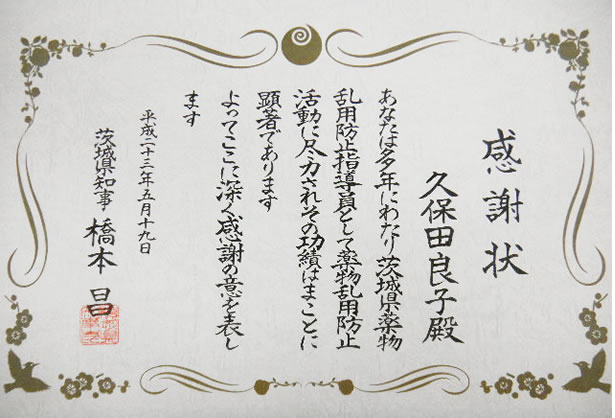 感謝状
久保田良子殿
あなたは多年にわたり茨城県薬物
乱用防止指導員として薬物乱用防止
活動に尽力されその功績はまことに
顕著であります
よってここに深く感謝の意を表し
ます
平成二十三年五月十九日
茨城県知事 橋本昌